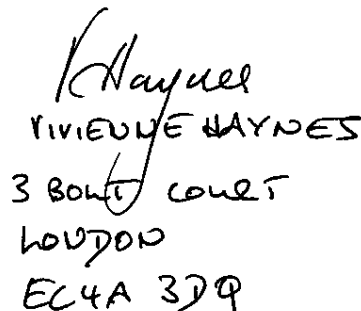 VHaynes
VIVIENNE HAYNES
3 BOLT COURT
LONDON
EC4A 3DQ